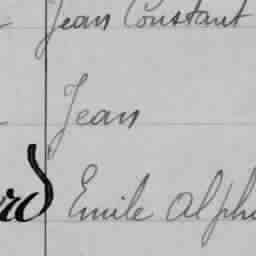 Jean Constant
Jean
rd Emile Alph